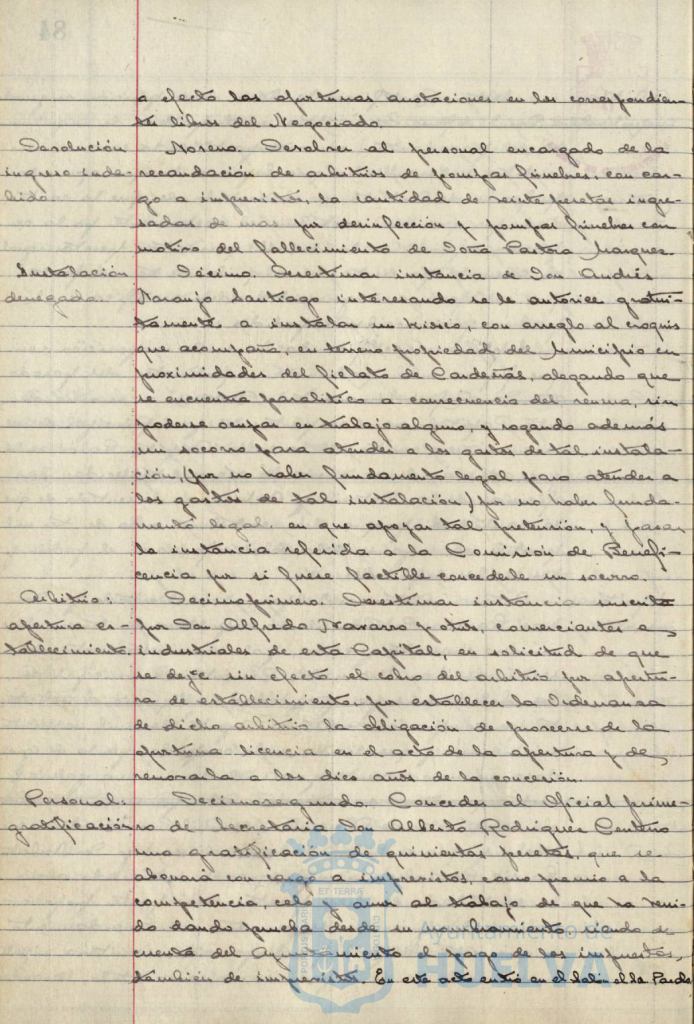 a efecto las oportunas anotaciones en los correspondien-
tes libros del Negociado.
Devolución
ingreso inde-
bido.
Noveno. Devolver al personal encargado de la
recaudación de arbitrios de pompas fúnebres, con car-
go a imprevistos, la cantidad de veinte pesetas ingre-
sadas de mas por desinfección y pompas fúnebres con
motivo del fallecimiento de Doña Pastora Marquez.
Instalación
denegada.
Décimo. Desestimar instancia de Don Andrés
Naranjo Santiago interesando se le autorice gratui-
tamente a instalar un kiosco, con arreglo al croquis
que acompaña, en terreno propiedad del Municipio en
proximidades del fielato de Cardeñas, alegando que
se encuentra paralitico a consecuencia del reuma, sin
poderse ocupar en trabajo alguno, y rogando además
un socorro para atender a los gastos de tal instala-
ción, (por no haber fundamento legal para atender a
los gastos de tal instalación) por no haber funda-
mento legal en que apoyar tal pretensión, y pasar
la instancia referida a la Comisión de Benefi-
cencia por si fuese factible concederle un socorro.
Arbitrio:
apertura es-
tablecimiento.
Decimoprimero. Desestimar instancia suscrita
por Don Alfredo Navarro y otros, comerciantes e
industriales de esta Capital, en solicitud de que
se deje sin efecto el cobro del arbitrio por apertu-
ra de establecimiento, por establecer la Ordenanza
de dicho arbitrio la obligación de proveerse de la
oportuna licencia en el acto de la apertura y de
renovarla a los diez años de la concesión.
Personal:
gratificación
Decimosegundo. Conceder al Oficial prime-
ro de Secretaría Don Alberto Rodriguez Centeno
una gratificación de quinientas pesetas, que se
abonará con cargo a imprevistos, como premio a la
competencia, celo y amor al trabajo de que ha veni-
do dando prueba desde su nombramiento siendo de
cuenta del Ayuntamiento el pago de los impuestos,
también de imprevistos. En este acto entró en el Salón el Sr. Pardo
Ayuntamiento de
HUELVA